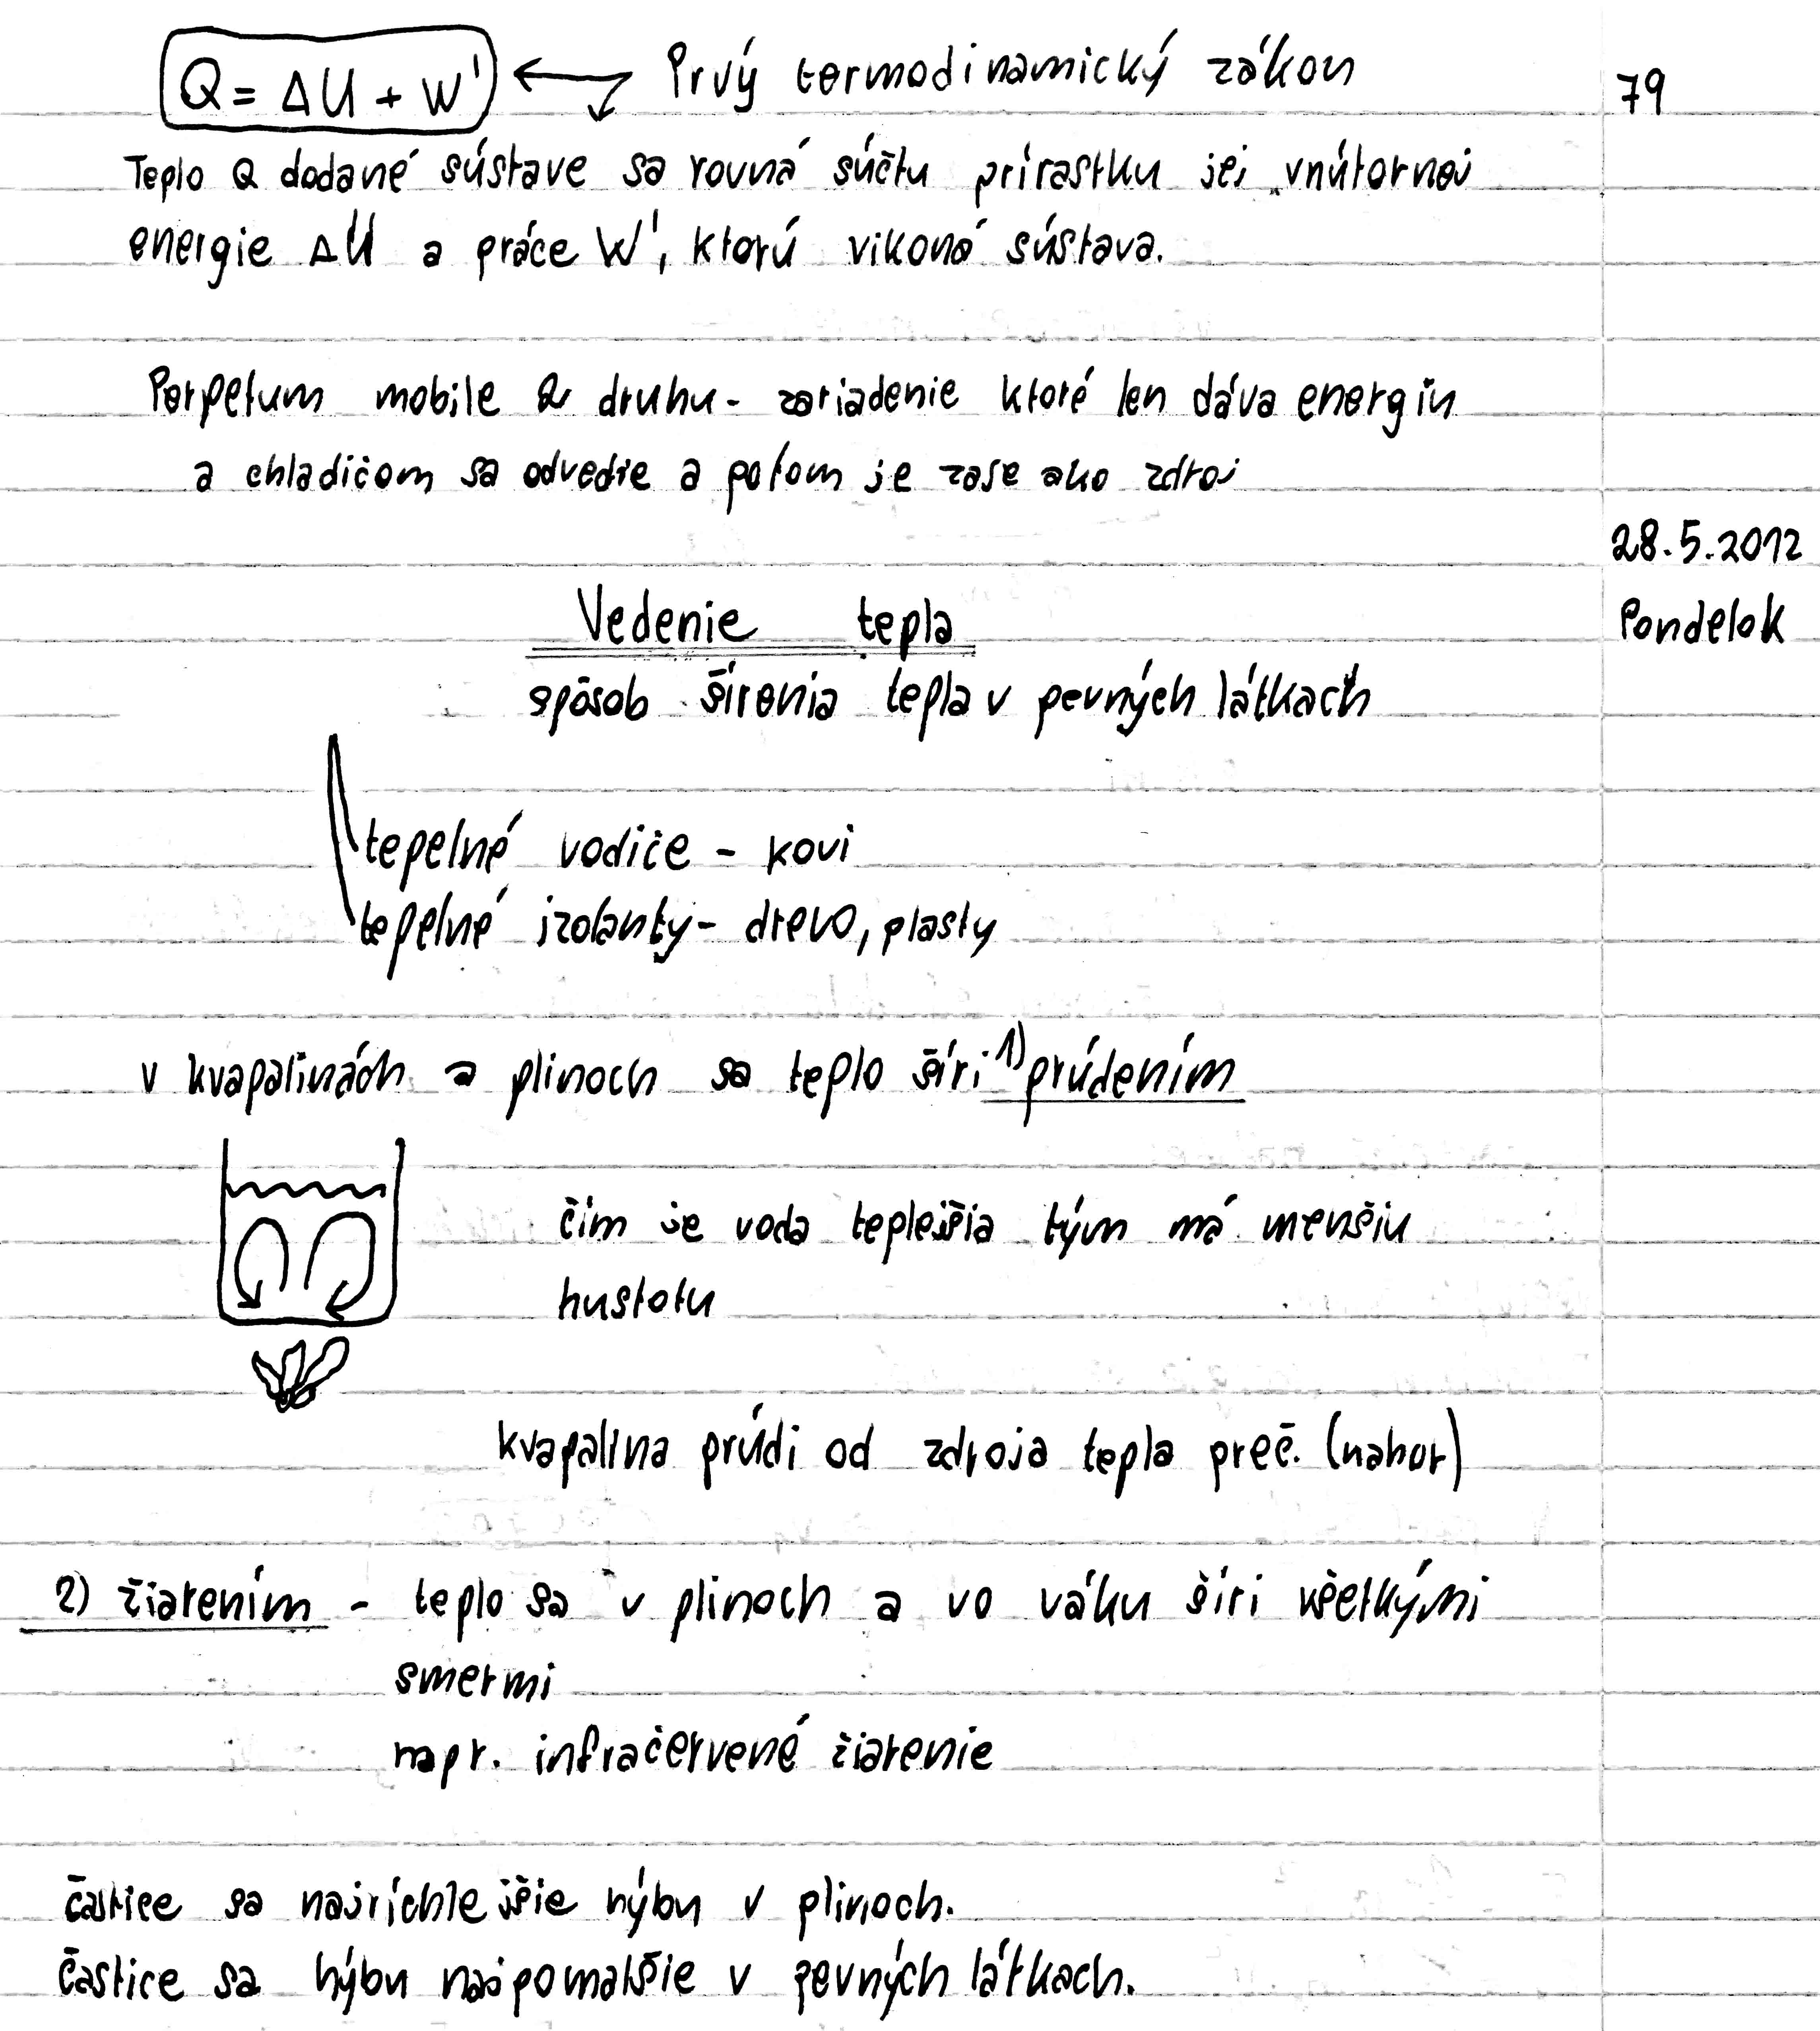 Q = ΔU + W' ← Prvý termodinamický zákon
79
Teplo Q dodané sústave sa rovná súčtu prírastku jej vnútornej
energie ΔU a práce W', ktorú vikoná sústava.
Perpetum mobile 2 druhu - zariadenie ktoré len dáva energiu
a chladičom sa odvedie a potom je zase ako zdroj
28.5.2012
Pondelok
Vedenie tepla
spôsob šírenia tepla v pevných látkach
tepelné vodiče - kovi
tepelné izolanty - drevo, plasty
v kvapalinách a plinoch sa teplo šíri 1) prúdením
čím je voda teplejšia tým má menšiu
hustotu
kvapalina prúdi od zdroja tepla preč. (nahor)
2) žiarením - teplo sa v plinoch a vo váku šíri všetkými
smermi
napr. infračervené žiarenie
častice sa najríchlejšie hýbu v plinoch.
častice sa hýbu najpomalšie v pevných látkach.